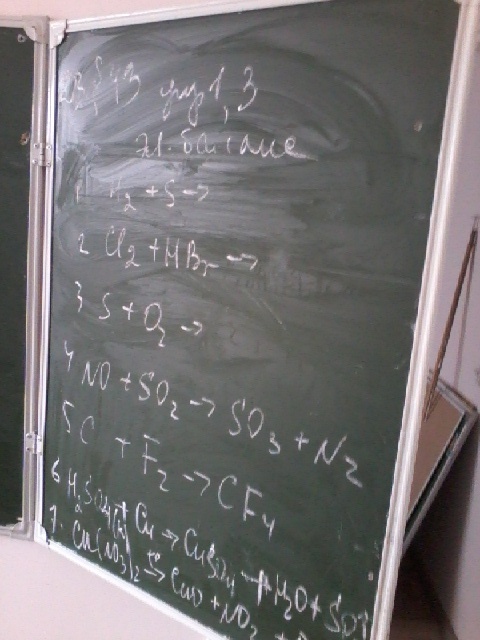 §43 упр 1,3
эл. баланс
1 H2 + S →
2 Cl2 + HBr →
3 S + O2 →
4 NO + SO2 → SO3 + N2
5 C + F2 → CF4
6 H2SO4(к) + Cu → CuSO4 + H2O + SO↑
7. Cu(NO3)2 → CuO + NO2 +